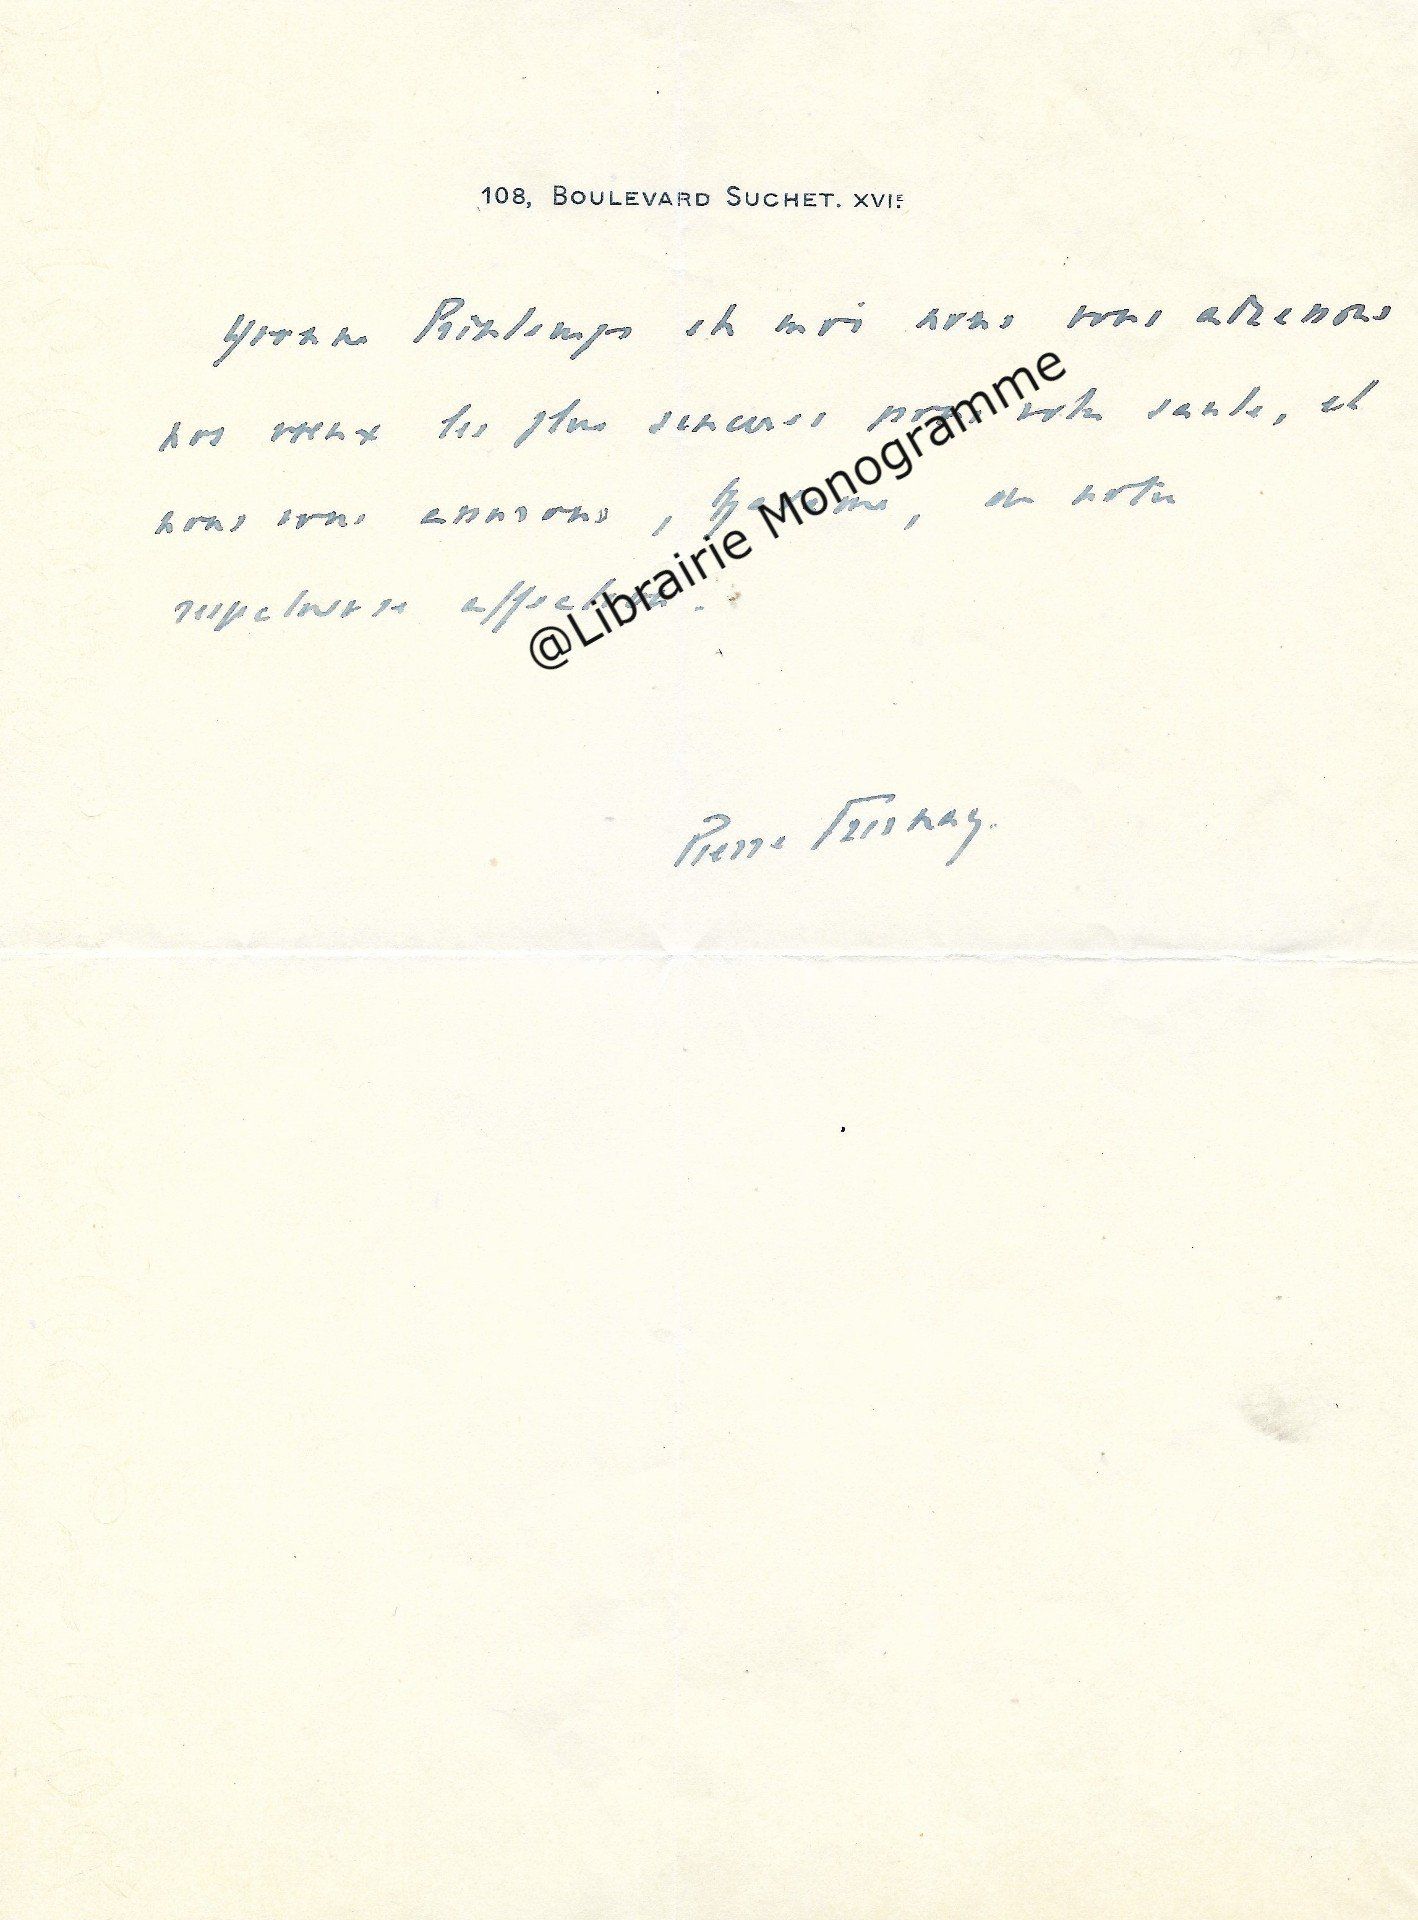 108, BOULEVARD SUCHET. XVIE.
Yvonne Printemps et moi nous vous adressons
nos vœux les plus sincères pour votre santé, et
nous vous assurons, Madame, de notre
respectueuse affection.
@Librairie Monogramme
Pierre Fresnay.